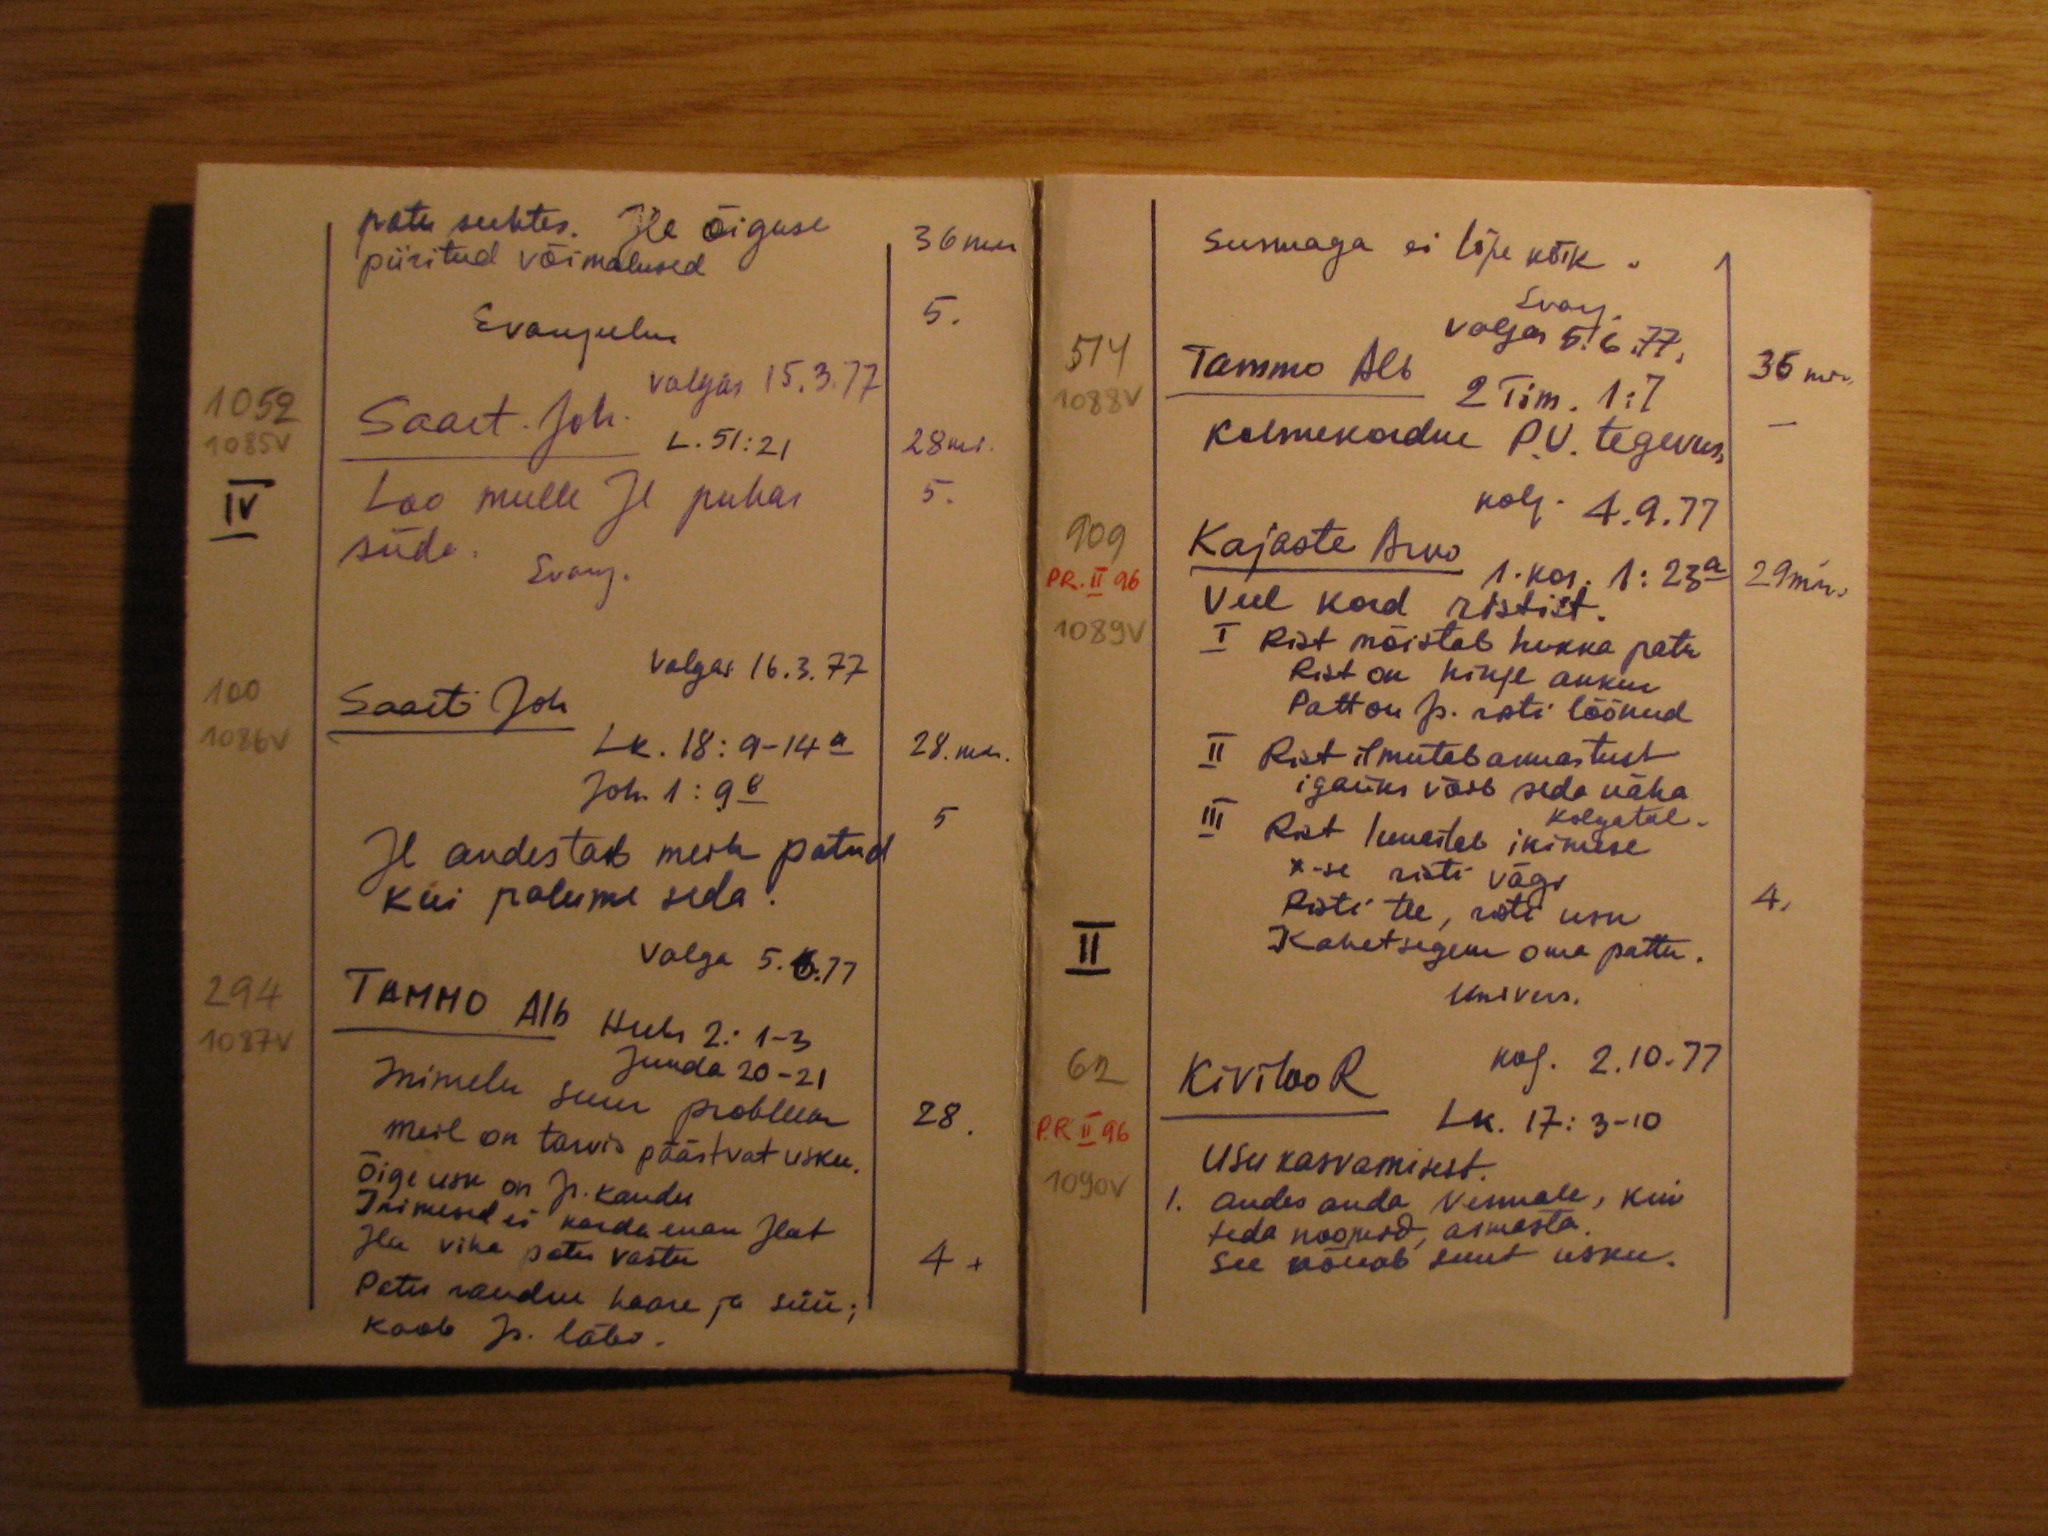 patu suhtes. Jle õiguse
piiritud võimalused
36 min
Evangelm
5.
Valgas 15.3.77
1052
Saart. Joh.
1085V
L. 51:21
28 mi.
IV
Loo mulle Jl puhas
5.
süda.
Evang.
Valgas 16.3.77
100
Saarti Joh
1086V
Lk. 18: 9-14a
28. min.
Joh 1: 9b
5
Jl andestab meile patud
kui palume seda.
Valga 5.6.77
294
TAMMO Alb
Heebr 2: 1-3
1087V
Juuda 20-21
Inimelu suur probleem
28.
meil on tarvis päästvat usku.
Õige usk on J. kaudu
Inimesed ei karda enam Jlat
Jla viha patu vastu
4 +
Patu raudne haare ja süü;
kaob J. läbi.
Surmaga ei lõpe kõik.
Evang.
Valgas 5.6.77.
514
Tammo Alb
36 min.
1088V
2 Tim. 1:7
Kolmekordne P.V. tegevus,
–
kolg. 4.9.77
909
Kajaste Arvo
PR. II 96
1. Kor. 1: 23a
29 min.
Veel kord ristist.
1089V
I Rist mõistab hukka patu
Rist on hinge ankur
Patt on J. risti löönud
II Rist ilmutab armastust
igaüks võib seda näha
Kolgatal.
III Rist lunastab inimese
x-se risti vägi
Risti tee, risti usu
4.
II
Kahetsegem oma pattu.
Univers.
62
Kiviloo R
kolg. 2.10.77
P.R II 96
Lk. 17: 3-10
Usu kasvamisest.
1090V
1. Andes anda vennale, kui
teda noomid, armasta.
See nõuab suurt usku.